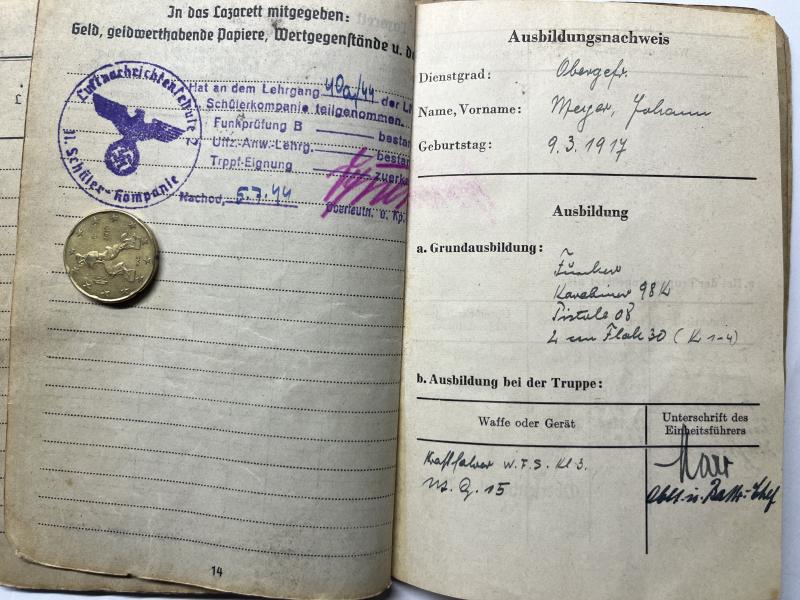 In das Lazarett mitgegeben:
Geld, geldwerthabende Papiere, Wertgegenstände u. de
Luftnachrichtenschule 2
11. Schüler-Kompanie
Hat an dem Lehrgang der L
Schülerkompanie teilgenommen.
Funkprüfung B bestan
Uffz.-Anw.-Lehrg. bestan
Trppf-Eignung zuerka
Nachod, 5.7.44
Oberleutn. u. Kp.
14
Ausbildungsnachweis
Dienstgrad: Obergefr.
Name, Vorname: Meyer, Johann
Geburtstag: 9.3.1917
Ausbildung
a. Grundausbildung:
Funker
Karabiner 98K
Pistole 08
2 cm Flak 30 (K 1-4)
b. Ausbildung bei der Truppe:
Waffe oder Gerät
Unterschrift des
Einheitsführers
Kraftfahrer W.F.S. Kl 3.
M.G. 15
Oblt. u. Battr.-Chef